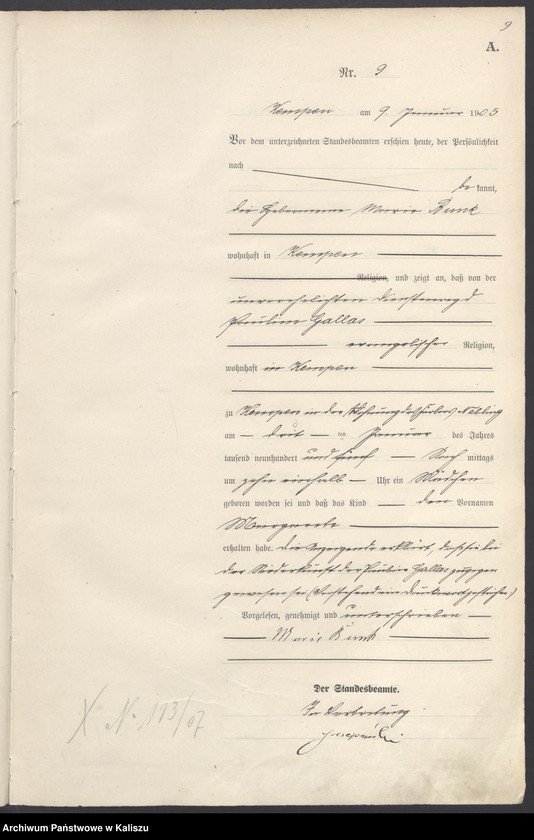 9
A.
Nr. 9
Kempen am 9. Januar 1905
Vor dem unterzeichneten Standesbeamten erschien heute, der Persönlichkeit
nach
be kannt,
die Hebamme Marie Bunk
wohnhaft in Kempen
Religion, und zeigt an, daß von der
unverehelichten Dienstmagd
Pauline Gallas
evangelischer Religion,
wohnhaft in Kempen
zu Kempen in der Wohnung des Nelling
am drit ten Januar des Jahres
tausend neunhundert und fünf Nach mittags
um zehn einhalb Uhr ein Mädchen
geboren worden sei und daß das Kind den Vornamen
Margarete
erhalten habe. Die Anzeigende erklärt, daß sie bei
der Niederkunft der Pauline Gallas zugegen
gewesen sei. (Vorstehend ein Druckwort gestrichen)
Vorgelesen, genehmigt und unterschrieben
Marie Bunk
Der Standesbeamte.
In Vertretung
X No 193/07
Archiwum Państwowe w Kaliszu